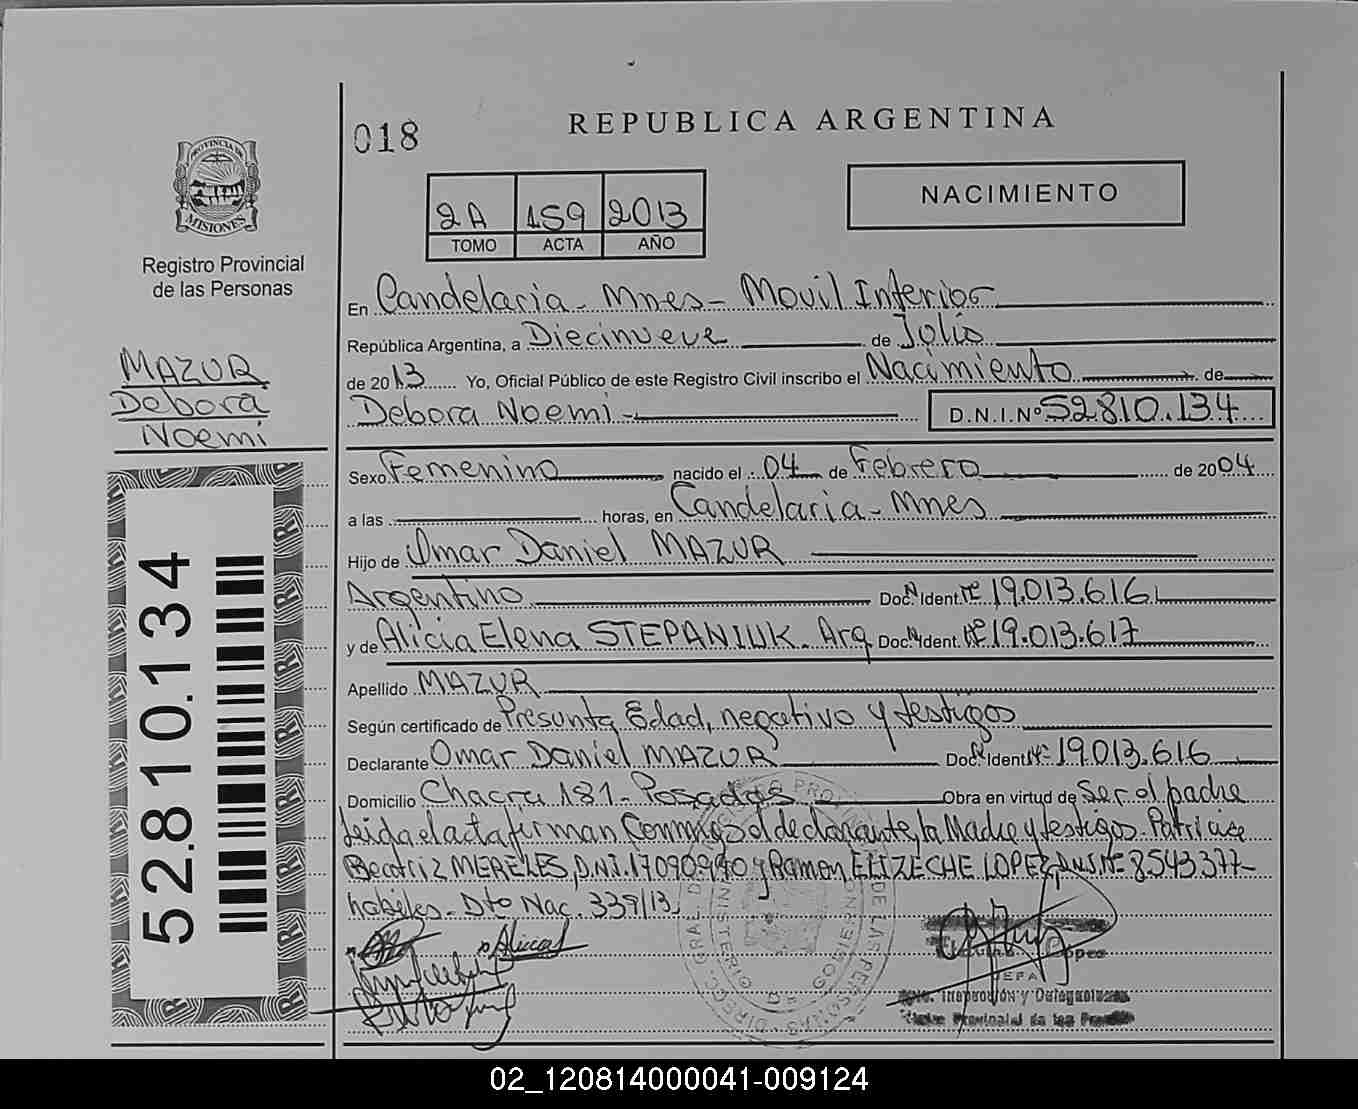 018
REPUBLICA ARGENTINA
PROVINCIA DE
MISIONES
Registro Provincial
de las Personas
2A 159 2013
TOMO ACTA AÑO
NACIMIENTO
MAZUR
Debora
Noemi
52.810.134
En Candelaria - Mnes - Movil Inferior
República Argentina, a Diecinueve de Julio
de 2013 Yo, Oficial Público de este Registro Civil inscribo el Nacimiento de
Debora Noemi - D.N.I.Nº 52810.134
Sexo Femenino nacido el 04 de Febrero de 2004
a las horas, en Candelaria - Mnes
Hijo de Omar Daniel MAZUR
Argentino Doc. Ident. Nº 19.013.616
y de Alicia Elena STEPANIUK. Arg Doc. Ident. Nº 19.013.617
Apellido MAZUR
Según certificado de Presunta Edad, negativo y testigos
Declarante Omar Daniel MAZUR Doc. Ident. Nº 19.013.616
Domicilio Chacra 181 - Posadas Obra en virtud de Ser el padre
Leida el acta firman Conmigo el declarante, la Madre y testigos - Patricia
Beatriz MERELES, D.N.I. 17090990 y Ramon ELIZECHE LOPEZ D.N.I. Nº 8543377-
habiles - Dto Nac. 339/13.
02_120814000041-009124